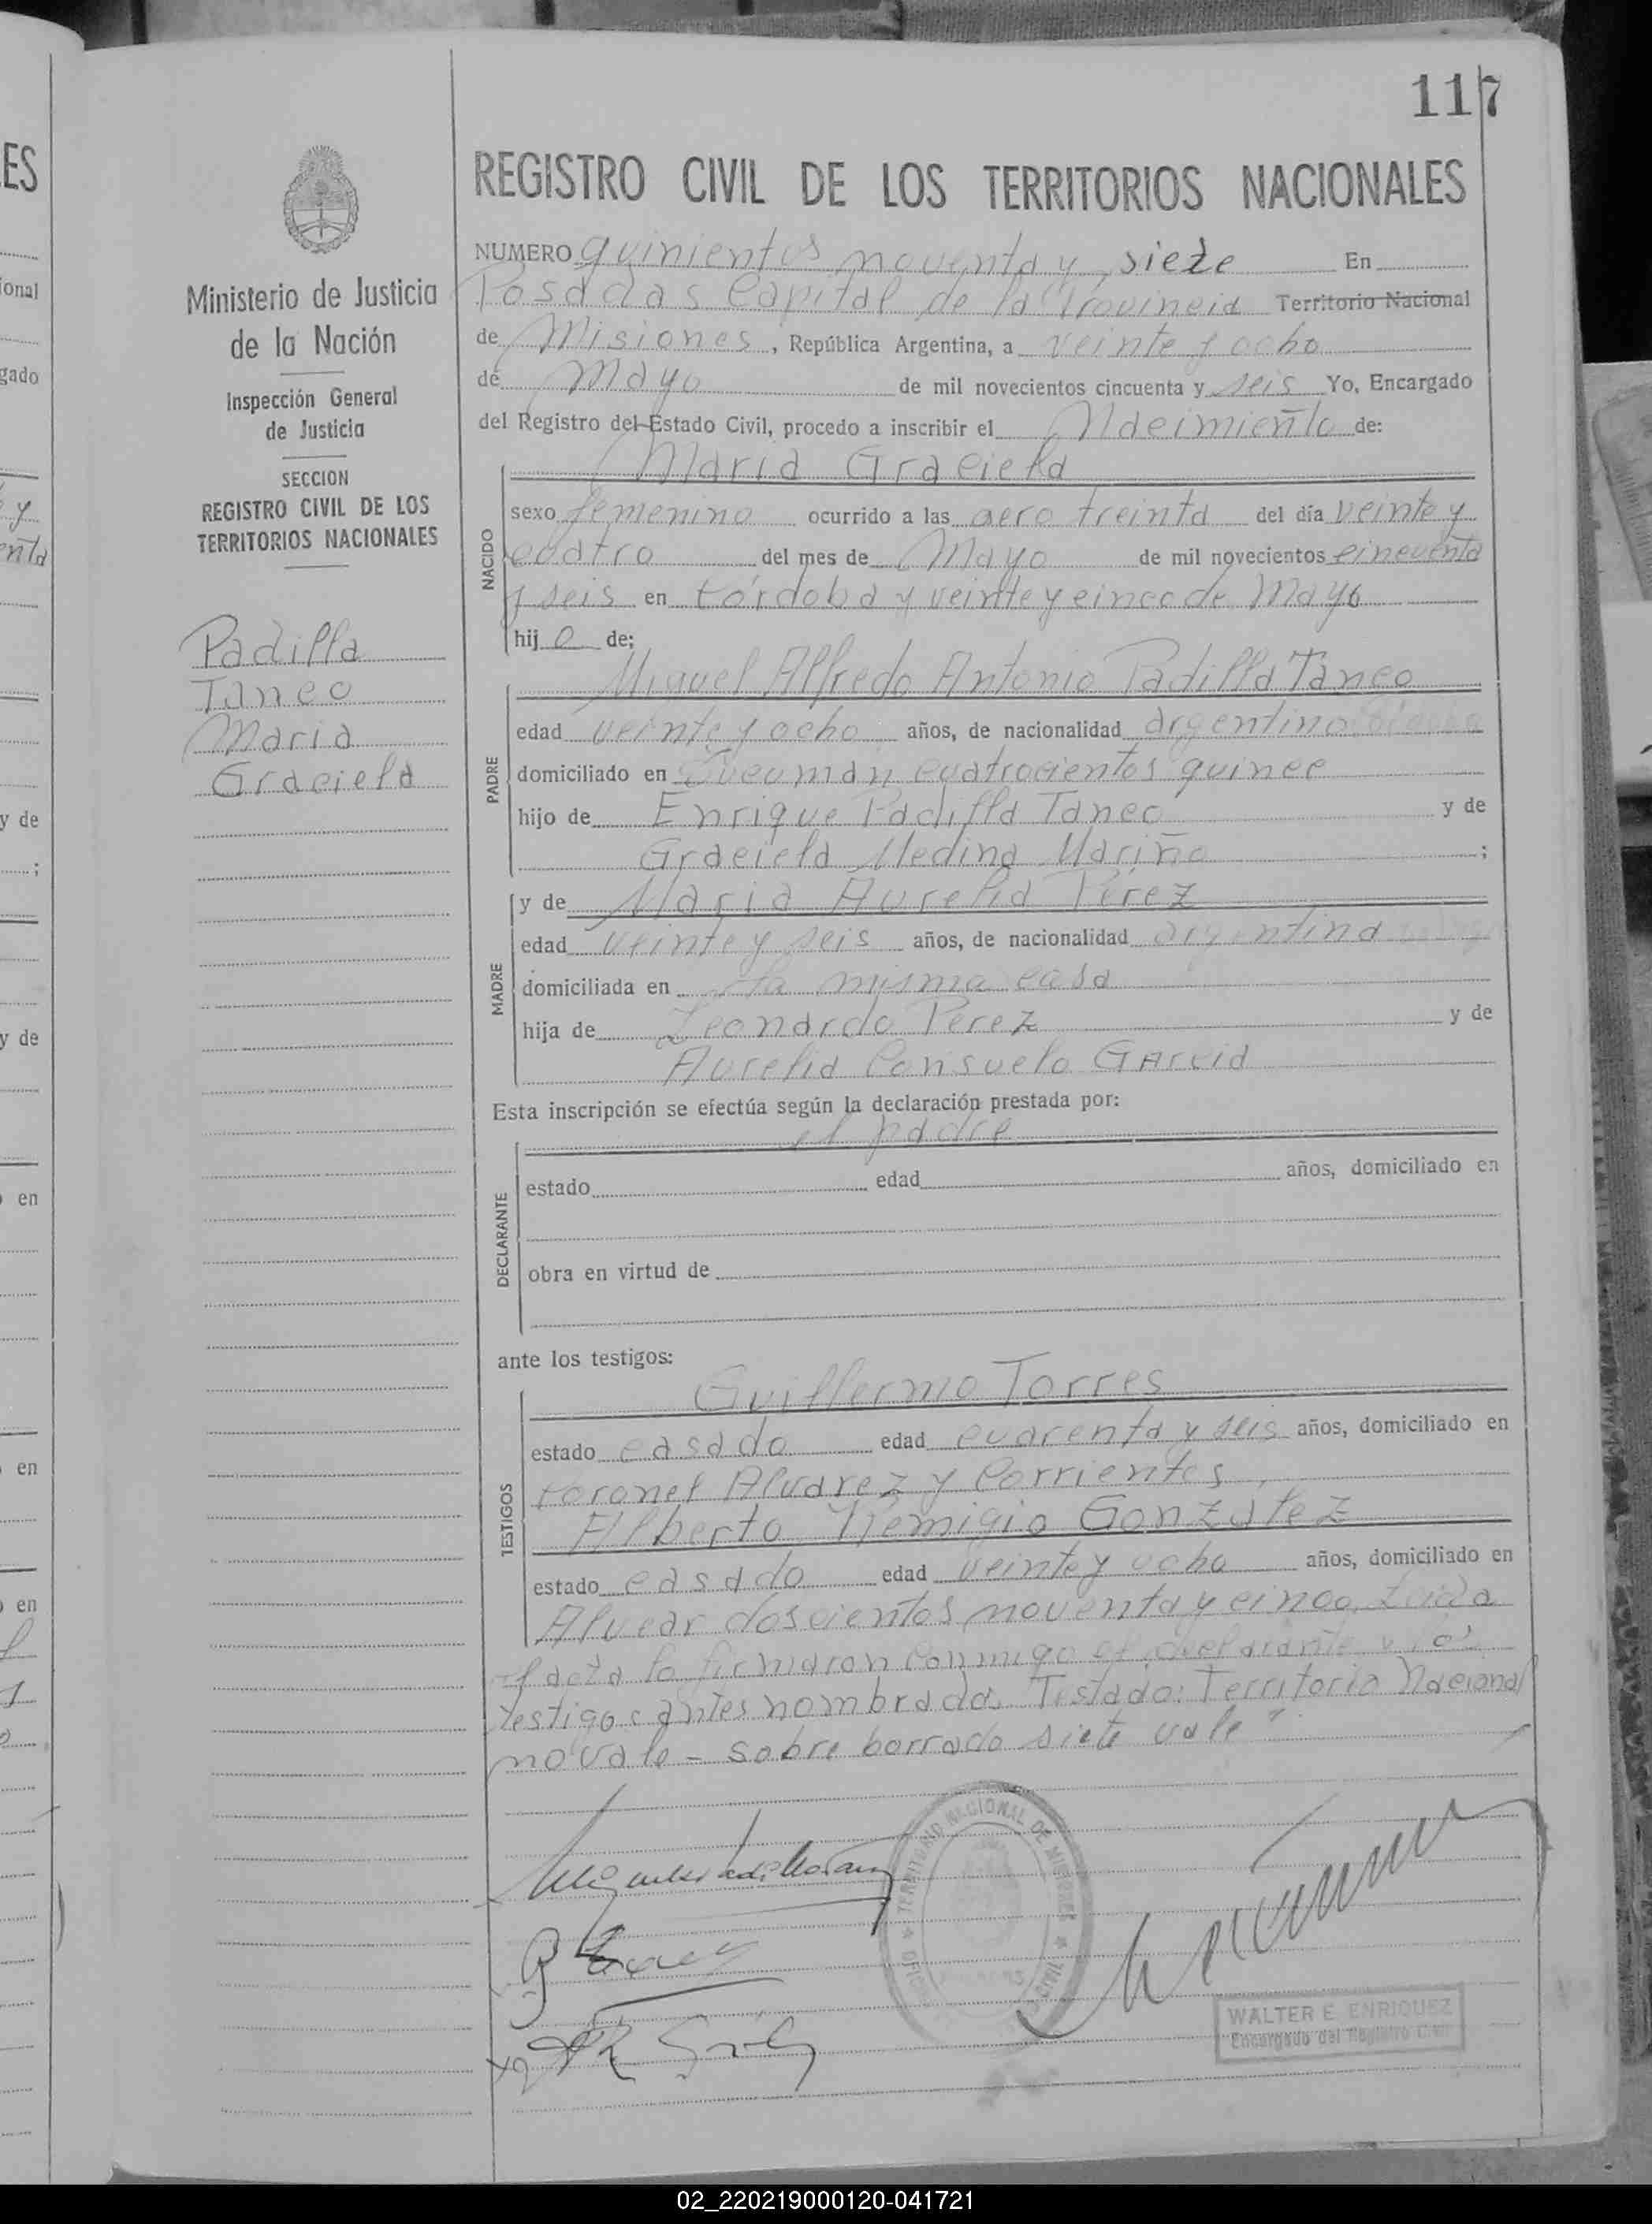 117
REGISTRO CIVIL DE LOS TERRITORIOS NACIONALES
Ministerio de Justicia
de la Nación
Inspección General
de Justicia
SECCION
REGISTRO CIVIL DE LOS
TERRITORIOS NACIONALES
Padilla
Taneo
Maria
Graciela
NUMERO quinientos noventa y siete En
Posadas Capital de la Provincia Territorio Nacional
de Misiones, República Argentina, a veinte y ocho
de Mayo de mil novecientos cincuenta y seis Yo, Encargado
del Registro del Estado Civil, procedo a inscribir el Nacimiento de:
NACIDO
Maria Graciela
sexo femenino ocurrido a las cero treinta del día veinte y
cuatro del mes de Mayo de mil novecientos cincuenta
y seis en Córdoba y veinte y cinco de Mayo
hij a de;
PADRE
Miguel Alfredo Antonio Padilla Taneo
edad veinte y ocho años, de nacionalidad argentino
domiciliado en Tucumán cuatrocientos quince
hijo de Enrique Padilla Taneo y de
Graciela Medina Mariño ;
MADRE
y de Maria Aurelia Pérez
edad veinte y seis años, de nacionalidad argentina
domiciliada en la misma casa
hija de Leonardo Perez y de
Aurelia Consuelo Garcia
Esta inscripción se efectúa según la declaración prestada por:
DECLARANTE
el padre
estado edad años, domiciliado en
obra en virtud de
ante los testigos:
TESTIGOS
Guillermo Torres
estado casado edad cuarenta y seis años, domiciliado en
Coronel Alvarez y Corrientes
Alberto Remigio González
estado casado edad veinte y ocho años, domiciliado en
Alvear doscientos noventa y cinco. Leída
el acta la firmaron conmigo el declarante y los
testigos antes nombrados. Testado: Territorio Nacional
no vale - sobre borrado siete vale"
TERRITORIO NACIONAL DE MISIONES
CIVIL
WALTER E. ENRIQUEZ
Encargado del Registro Civil
ES
ional
gado
y
enta
y de
;
y de
en
en
en
02_220219000120-041721